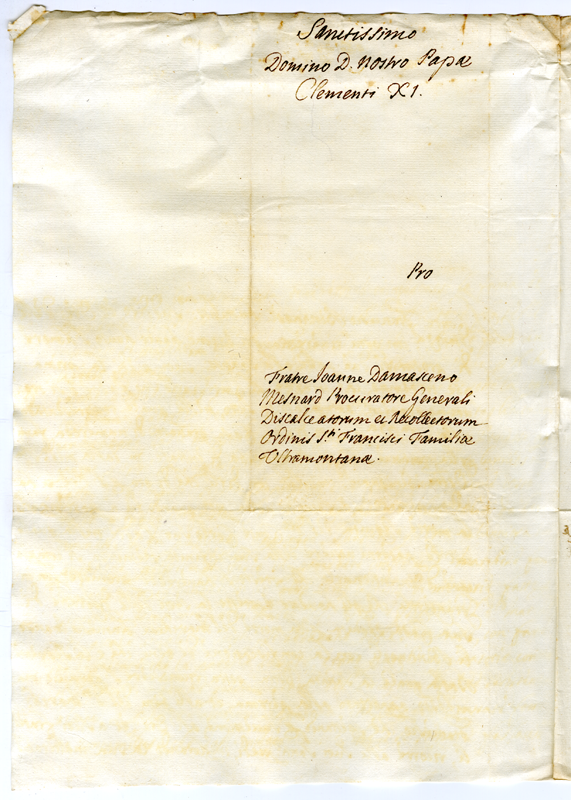 Sanctissimo
Domino D. nostro Papæ
Clementi XI.
Pro
Fratre Joanne Damasceno
Mesnard Procuratore Generali
Discalceatorum et Recollectorum
Ordinis S.ti Francisci Familiæ
Ultramontanæ.